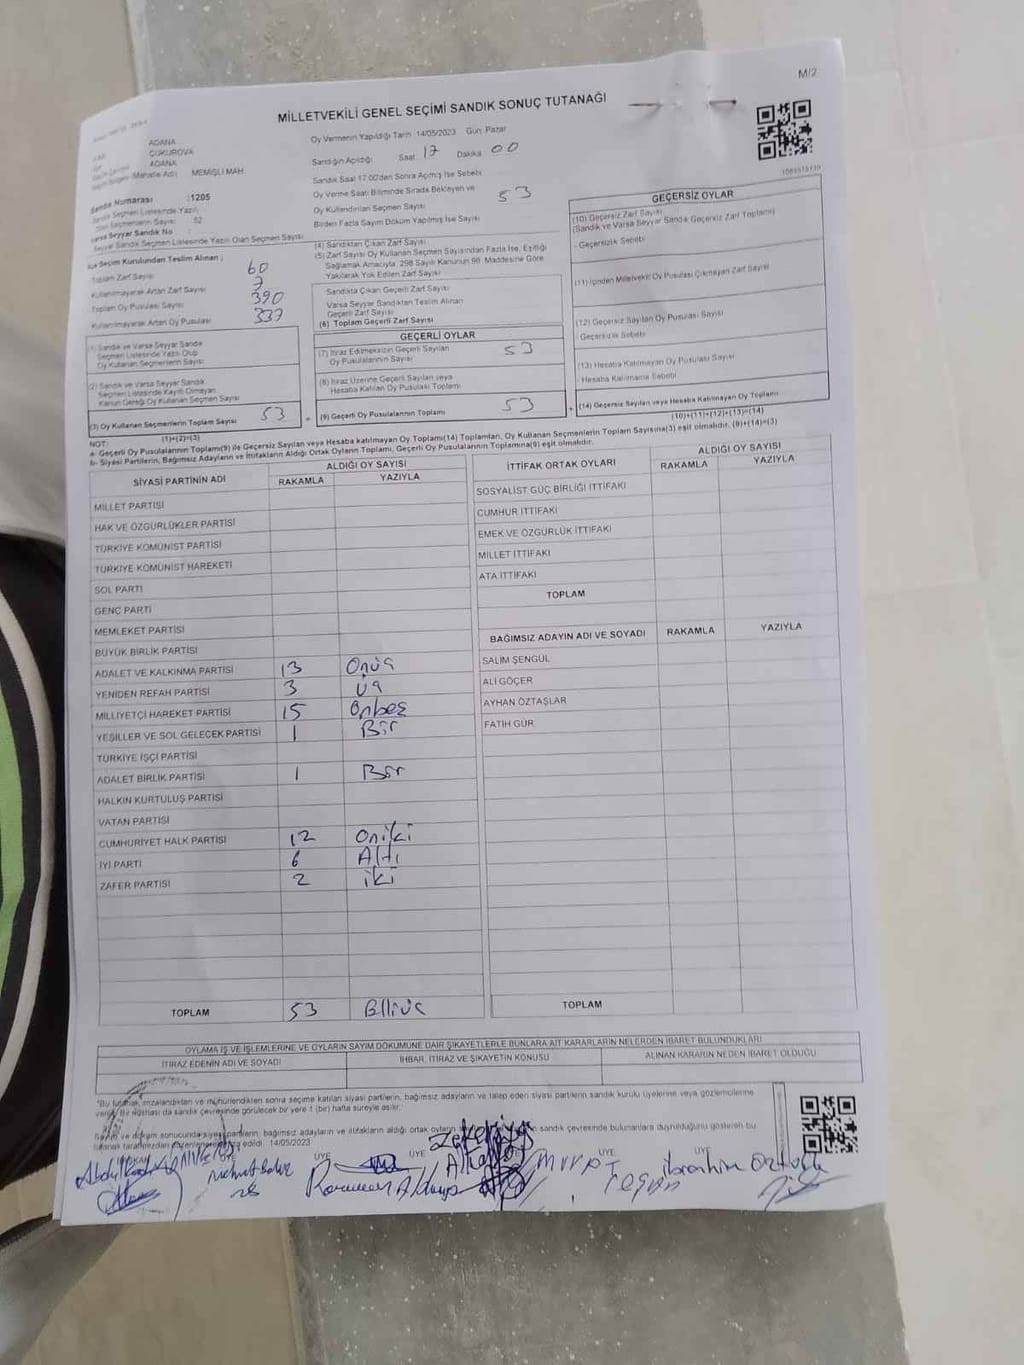 M/2
MİLLETVEKİLİ GENEL SEÇİMİ SANDIK SONUÇ TUTANAĞI
ADANA
ÇUKUROVA
ADANA
MEMİŞLİ MAH
Sandık Numarası :1205
Sandık Seçmen Listesinde Yazılı
Olan Seçmenlerin Sayısı 52
Varsa Seyyar Sandık No
Seyyar Sandık Seçmen Listesinde Yazılı Olan Seçmen Sayısı
Oy Vermenin Yapıldığı Tarih :14/05/2023 Gün: Pazar
Sandığın Açıldığı Saat 17 Dakika 00
Sandık Saat 17:00'den Sonra Açılmış İse Sebebi
Oy Verme Saati Bitiminde Sırada Bekleyen ve
Oy Kullandırılan Seçmen Sayısı 53
Birden Fazla Sayım Döküm Yapılmış İse Sayısı
İlçe Seçim Kurulundan Teslim Alınan ;
Toplam Zarf Sayısı 60
Kullanılmayarak Artan Zarf Sayısı 7
Toplam Oy Pusulası Sayısı 390
Kullanılmayarak Artan Oy Pusulası 337
(1) Sandık ve Varsa Seyyar Sandık
Seçmen Listesinde Yazılı Olup
Oy Kullanan Seçmenlerin Sayısı
(2) Sandık ve Varsa Seyyar Sandık
Seçmen Listesinde Kayıtlı Olmayan
Kanun Gereği Oy Kullanan Seçmen Sayısı
(3) Oy Kullanan Seçmenlerin Toplam Sayısı 53
(1)+(2)=(3)
(4) Sandıktan Çıkan Zarf Sayısı
(5) Zarf Sayısı Oy Kullanan Seçmen Sayısından Fazla İse, Eşitliği
Sağlamak Amacıyla; 298 Sayılı Kanunun 98. Maddesine Göre
Yakılarak Yok Edilen Zarf Sayısı
Sandıkta Çıkan Geçerli Zarf Sayısı
Varsa Seyyar Sandıktan Teslim Alınan
Geçerli Zarf Sayısı
(6) Toplam Geçerli Zarf Sayısı
GEÇERLİ OYLAR
(7) İtiraz Edilmeksizin Geçerli Sayılan
Oy Pusulalarının Sayısı 53
(8) İtiraz Üzerine Geçerli Sayılan veya
Hesaba Katılan Oy Pusulası Toplamı
= (9) Geçerli Oy Pusulalarının Toplamı 53
GEÇERSİZ OYLAR
(10) Geçersiz Zarf Sayısı
(Sandık ve Varsa Seyyar Sandık Geçersiz Zarf Toplamı)
- Geçersizlik Sebebi
(11) İçinden Milletvekili Oy Pusulası Çıkmayan Zarf Sayısı
(12) Geçersiz Sayılan Oy Pusulası Sayısı
Geçersizlik Sebebi
(13) Hesaba Katılmayan Oy Pusulası Sayısı
Hesaba Katılmama Sebebi
+ (14) Geçersiz Sayılan veya Hesaba Katılmayan Oy Toplamı
(10)+(11)+(12)+(13)=(14)
NOT:
a- Geçerli Oy Pusulalarının Toplamı(9) ile Geçersiz Sayılan veya Hesaba katılmayan Oy Toplamı(14) Toplamları, Oy Kullanan Seçmenlerin Toplam Sayısına(3) eşit olmalıdır. (9)+(14)=(3)
b- Siyasi Partilerin, Bağımsız Adayların ve İttifakların Aldığı Ortak Oyların Toplamı, Geçerli Oy Pusulalarının Toplamına(9) eşit olmalıdır.
SİYASİ PARTİNİN ADI ALDIĞI OY SAYISI
RAKAMLA YAZIYLA
MİLLET PARTİSİ
HAK VE ÖZGÜRLÜKLER PARTİSİ
TÜRKİYE KOMÜNİST PARTİSİ
TÜRKİYE KOMÜNİST HAREKETİ
SOL PARTİ
GENÇ PARTİ
MEMLEKET PARTİSİ
BÜYÜK BİRLİK PARTİSİ
ADALET VE KALKINMA PARTİSİ 13 Onüç
YENİDEN REFAH PARTİSİ 3 üç
MİLLİYETÇİ HAREKET PARTİSİ 15 Onbeş
YEŞİLLER VE SOL GELECEK PARTİSİ 1 Bir
TÜRKİYE İŞÇİ PARTİSİ
ADALET BİRLİK PARTİSİ 1 Bir
HALKIN KURTULUŞ PARTİSİ
VATAN PARTİSİ
CUMHURİYET HALK PARTİSİ 12 Oniki
İYİ PARTİ 6 Altı
ZAFER PARTİSİ 2 iki
TOPLAM 53 Elliüç
İTTİFAK ORTAK OYLARI ALDIĞI OY SAYISI
RAKAMLA YAZIYLA
SOSYALİST GÜÇ BİRLİĞİ İTTİFAKI
CUMHUR İTTİFAKI
EMEK VE ÖZGÜRLÜK İTTİFAKI
MİLLET İTTİFAKI
ATA İTTİFAKI
TOPLAM
BAĞIMSIZ ADAYIN ADI VE SOYADI RAKAMLA YAZIYLA
SALİM ŞENGÜL
ALİ GÖÇER
AYHAN ÖZTAŞLAR
FATİH GÜR
TOPLAM
OYLAMA İŞ VE İŞLEMLERİNE VE OYLARIN SAYIM DÖKÜMÜNE DAİR ŞİKAYETLERLE BUNLARA AİT KARARLARIN NELERDEN İBARET BULUNDUKLARI
İTİRAZ EDENİN ADI VE SOYADI İHBAR, İTİRAZ VE ŞİKAYETİN KONUSU ALINAN KARARIN NEDEN İBARET OLDUĞU
*Bu tutanak, imzalandıktan ve mühürlendikten sonra seçime katılan siyasi partilerin, bağımsız adayların ve talep eden siyasi partilerin sandık kurulu üyelerine veya gözlemcilerine
verilir. Bir nüshası da sandık çevresinde görülecek bir yere 1 (bir) hafta süreyle asılır.
14/05/2023
ÜYE ÜYE ÜYE ÜYE ÜYE
Zekeriya
İbrahim